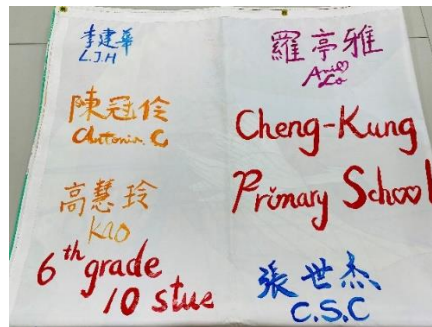 李建華
L.J.H
陳冠伶
高慧玲
Kao
6th grade
10 stue
羅亭雅
Cheng-Kung
Primary School
張世杰
C.S.C